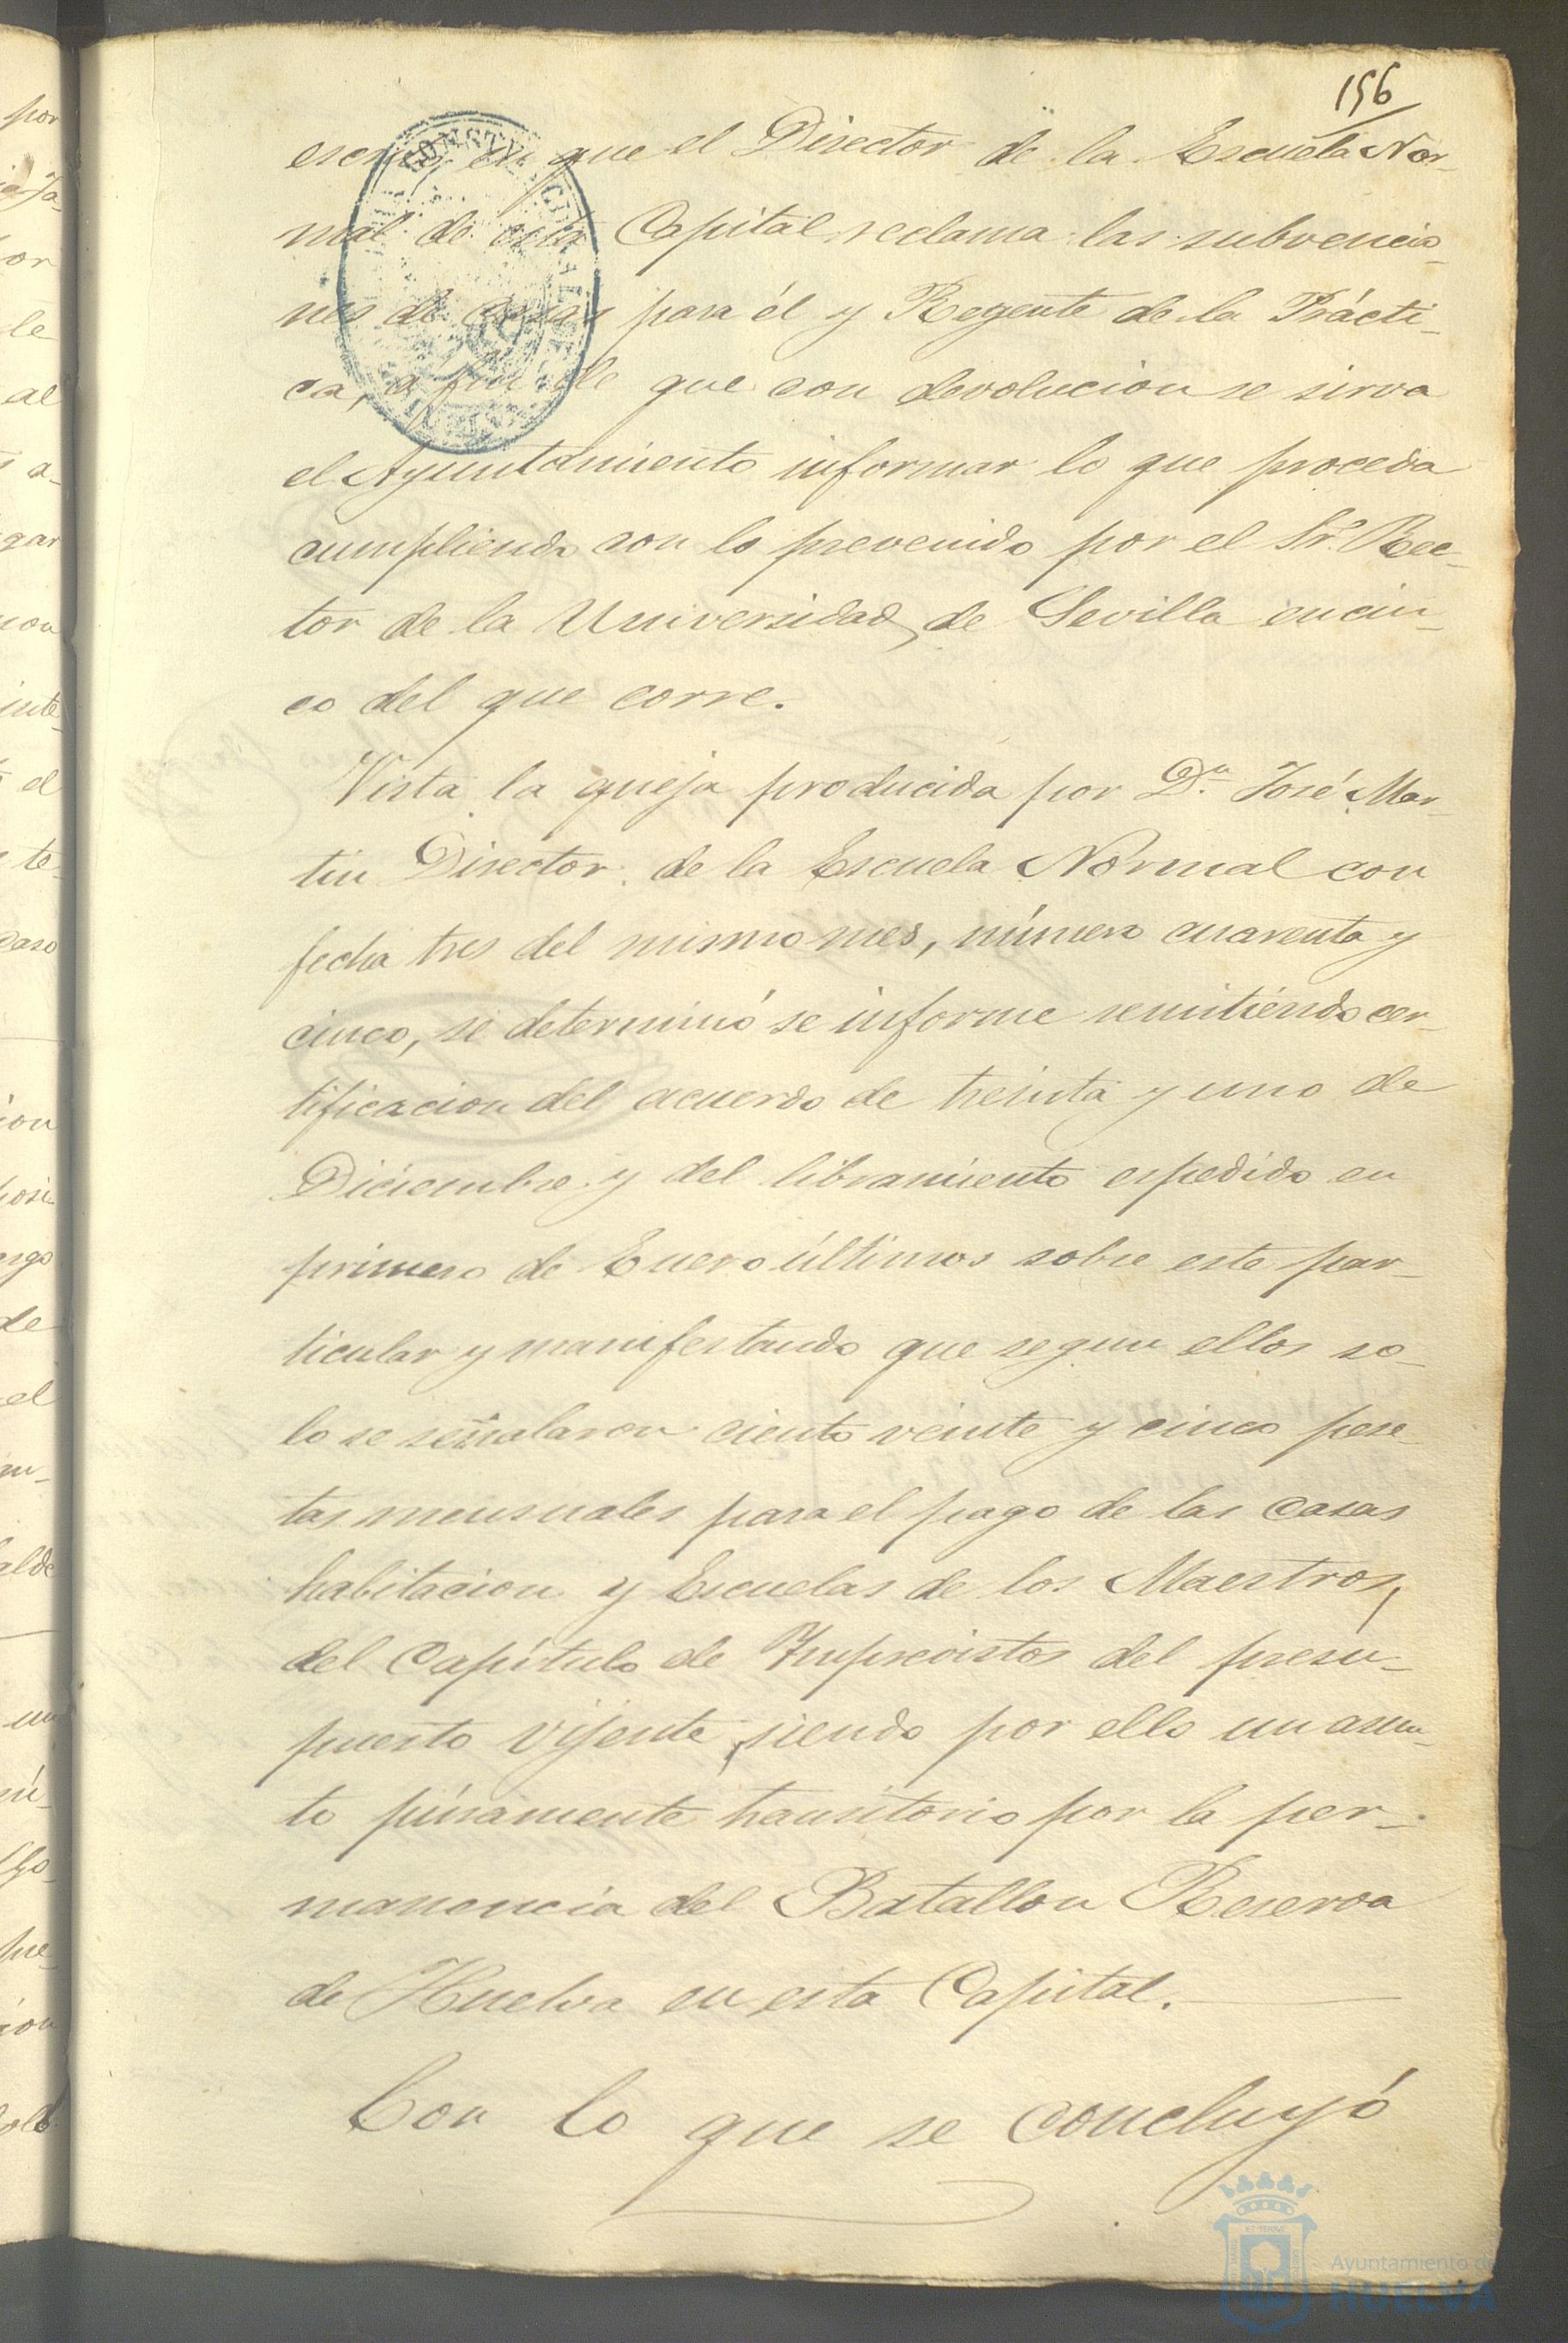 156
escrito en que el Director de la Escuela Nor-
mal de esta Capital reclama las subvencio-
nes de casas para él y Regente de la Prácti-
ca, a fin de que con devolucion se sirva
el Ayuntamiento informar lo que proceda
cumpliendo con lo prevenido por el Sr. Rec-
tor de la Universidad de Sevilla en cin-
co del que corre.
Vista la queja producida por Dn. José Mar-
tin Director de la Escuela Normal con
fecha tres del mismo mes, número cuarenta y
cinco, se determinó se informe remitiendo cer-
tificacion del acuerdo de treinta y uno de
Diciembre y del libramiento espedido en
primero de Enero últimos sobre este par-
ticular y manifestando que segun ellos so-
lo se señalaron ciento veinte y cinco pese-
tas mensuales para el pago de las casas
habitacion y Escuelas de los Maestros,
del Capítulo de Imprevistos del presu-
puesto vijente, siendo por ello un asun-
to púramente transitorio por la per-
manencia del Batallon Reserva
de Huelva en esta Capital.
Con lo que se concluyó
Ayuntamiento de
HUELVA